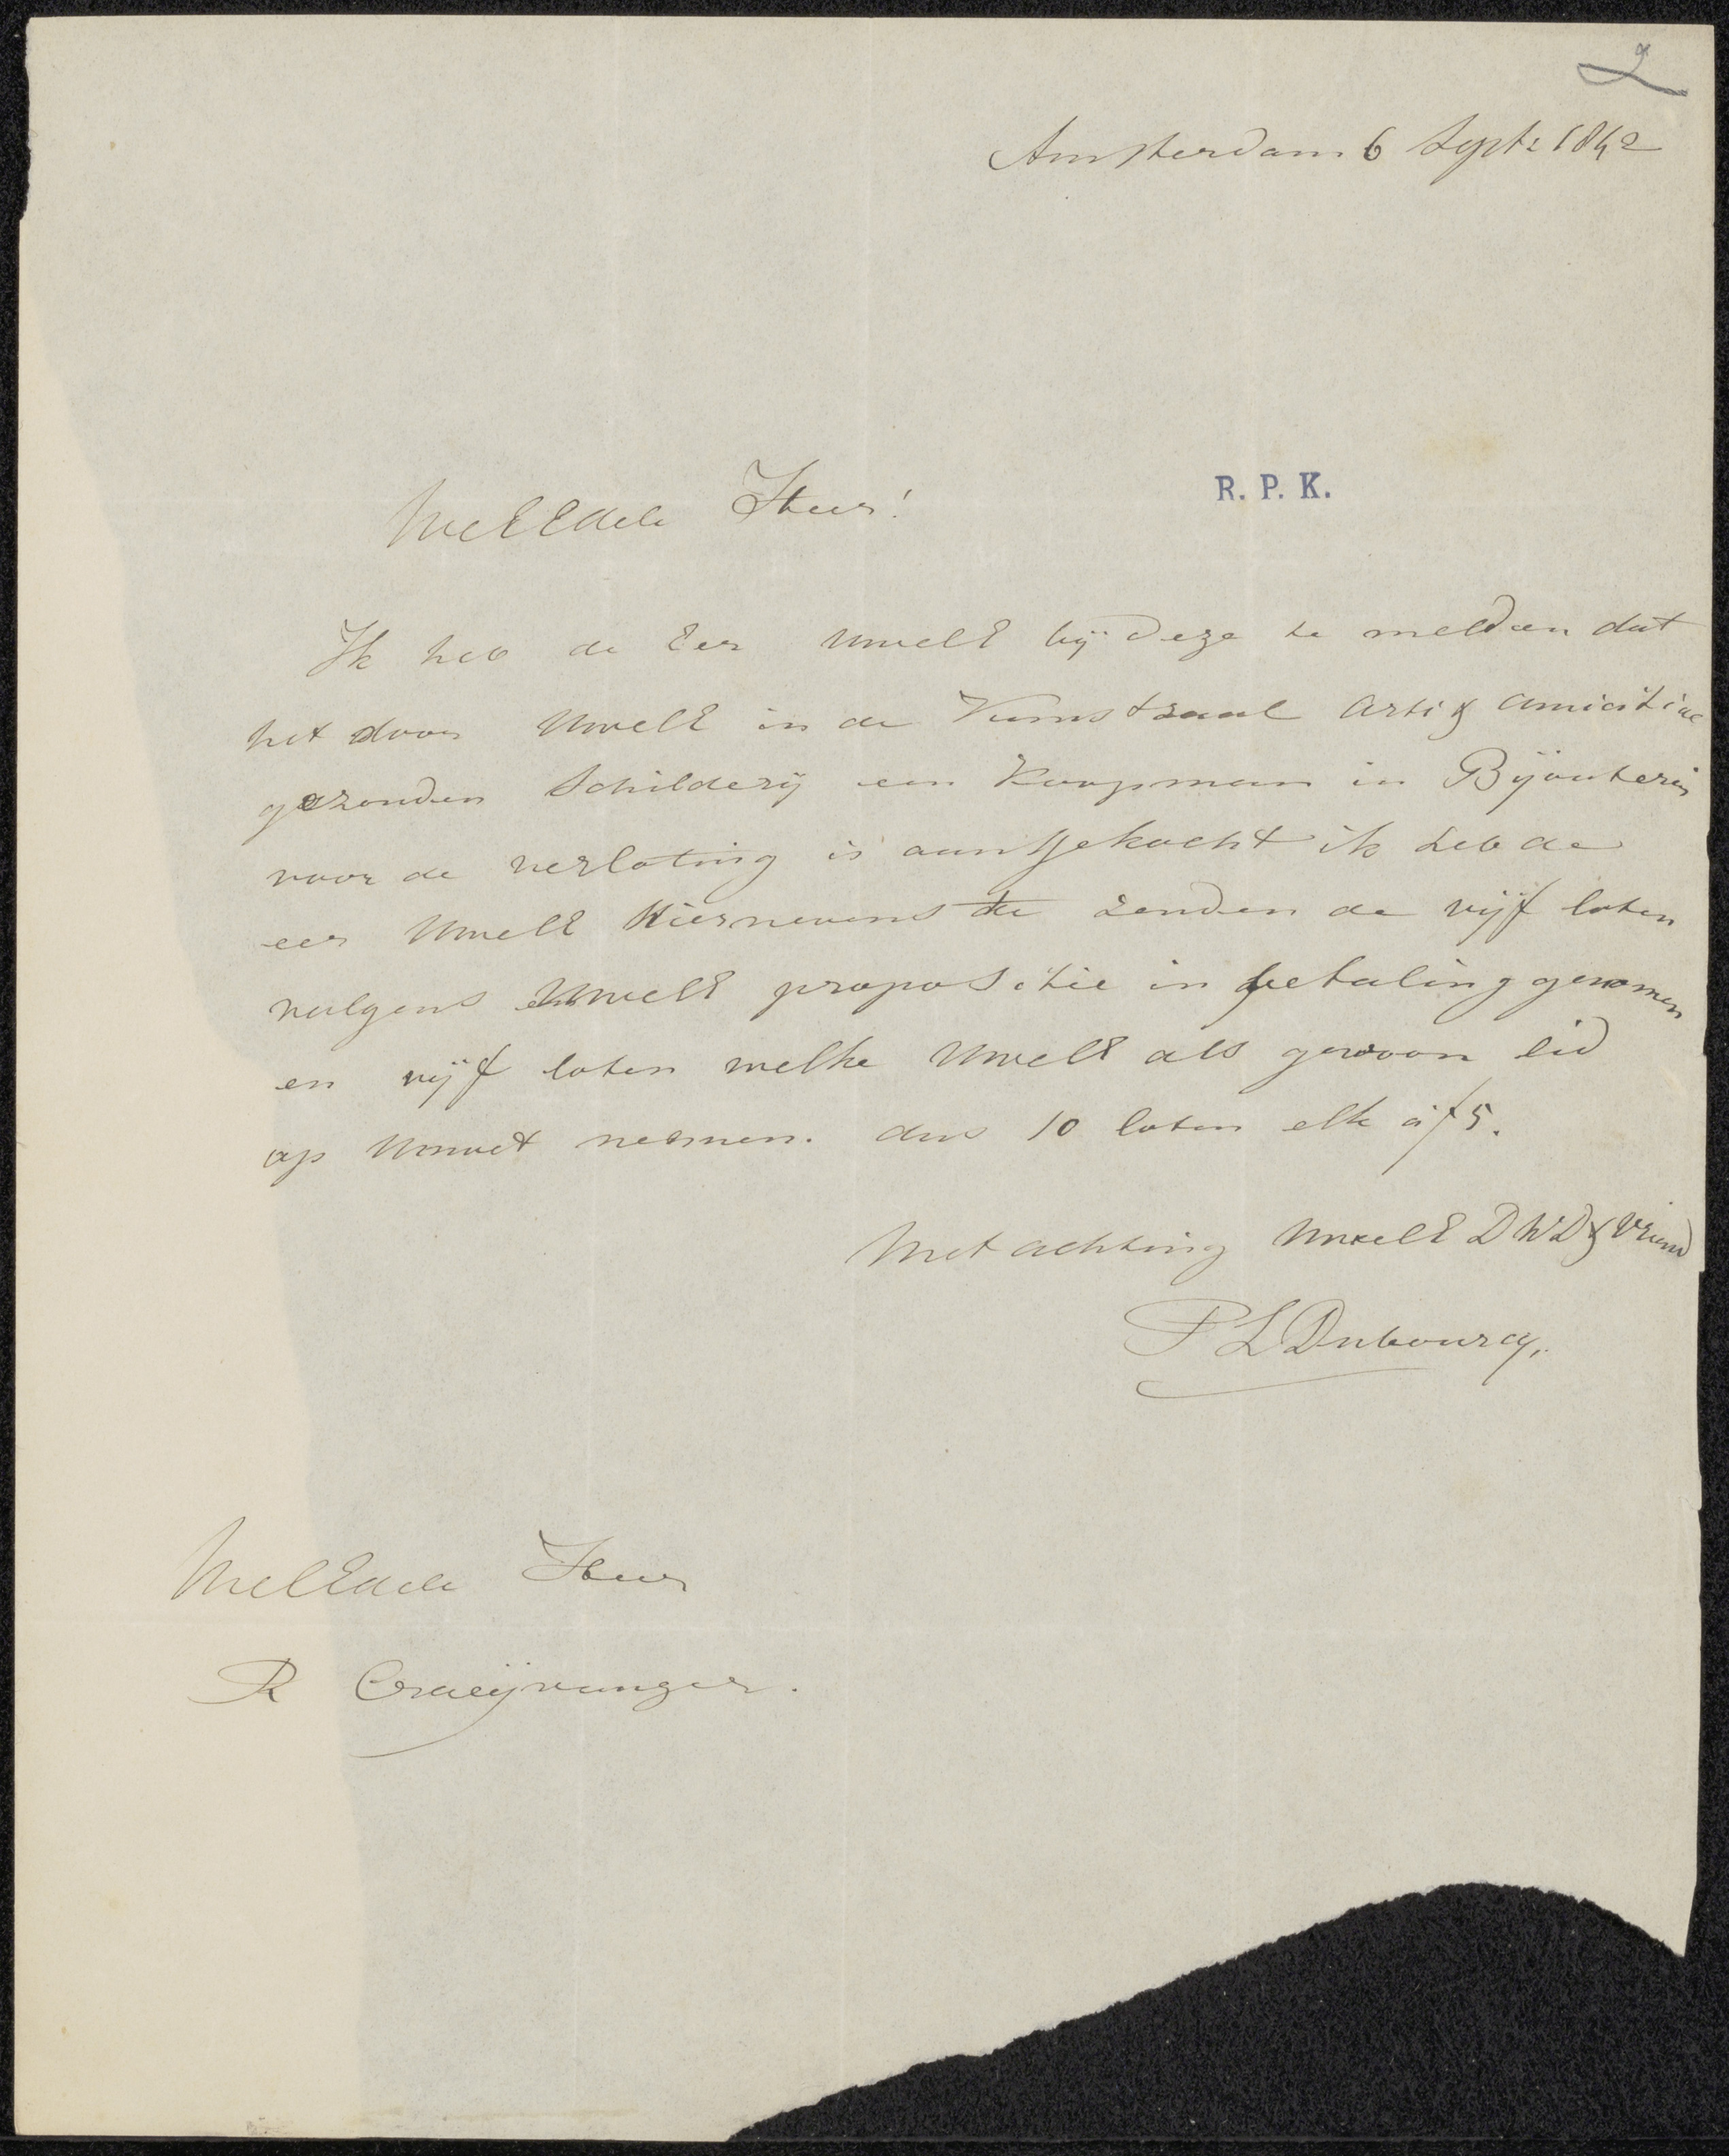 2
Amsterdam 6 Sept: 1842
R. P. K.
WelEdele Heer!
Ik heb de Eer UwelE bij deze te melden dat
het door UwelE in de Kunstzaal Arti & Amicitiae
gezonden Schilderij een Koopman in Bijouterien
voor de verloting is aangekocht ik heb de
eer UwelE Hiernevens te zenden de vijf loten
volgens UwelE propositie in betaling genomen
en vijf loten welke UwelE als gewoon lid
op moet nemen. dus 10 loten elk à f 5.
Met achting UwelE DWD & Vriend
P L Dubourcq.
WelEdele Heer
R Craeijvanger.